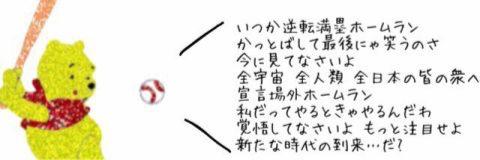 いつか逆転満塁ホームラン
かっとばして最後にゃ笑うのさ
今に見てなさいよ
全宇宙 全人類 全日本の皆の衆へ
宣言場外ホームラン
私だってやるときゃやるんだわ
覚悟してなさいよ もっと注目せよ
新たな時代の到来…だ?